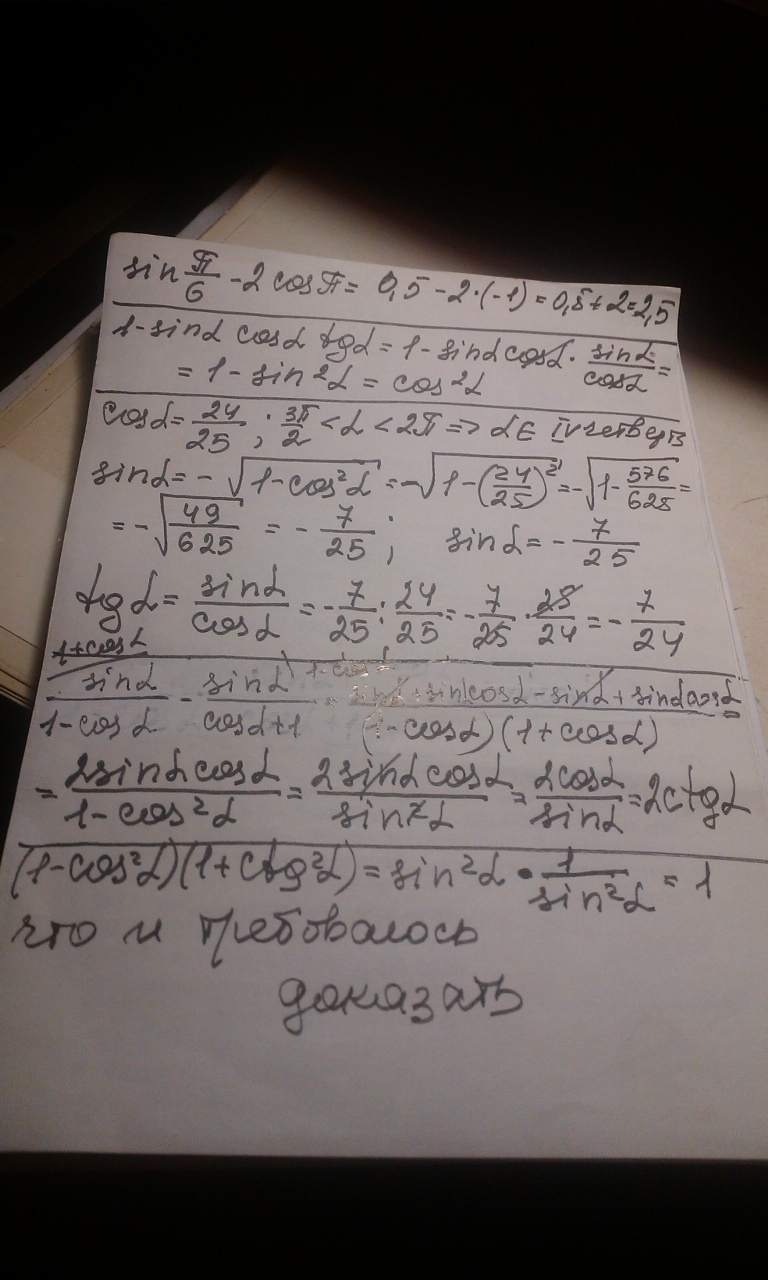 sin π/6 - 2 cos π = 0,5 - 2·(-1) = 0,5 + 2 = 2,5
1 - sin α cos α tg α = 1 - sin α cos α · sin α / cos α =
= 1 - sin²α = cos²α
cos α = 24/25 ; 3π/2 < α < 2π => α ∈ IV четверть
sin α = - √(1 - cos²α) = -√(1 - (24/25)²) = -√(1 - 576/625) =
= -√(49/625) = - 7/25 ; sin α = - 7/25
tg α = sin α / cos α = - 7/25 : 24/25 = - 7/25 · 25/24 = - 7/24
1+cos α 1-cos α
sin α / (1 - cos α) - sin α / (cos α + 1) = (sin α + sin α cos α - sin α + sin α cos α) / ((1 - cos α)(1 + cos α)) =
= 2 sin α cos α / (1 - cos²α) = 2 sin α cos α / sin²α = 2 cos α / sin α = 2 ctg α
(1 - cos²α)(1 + ctg²α) = sin²α · 1/sin²α = 1
что и требовалось
доказать